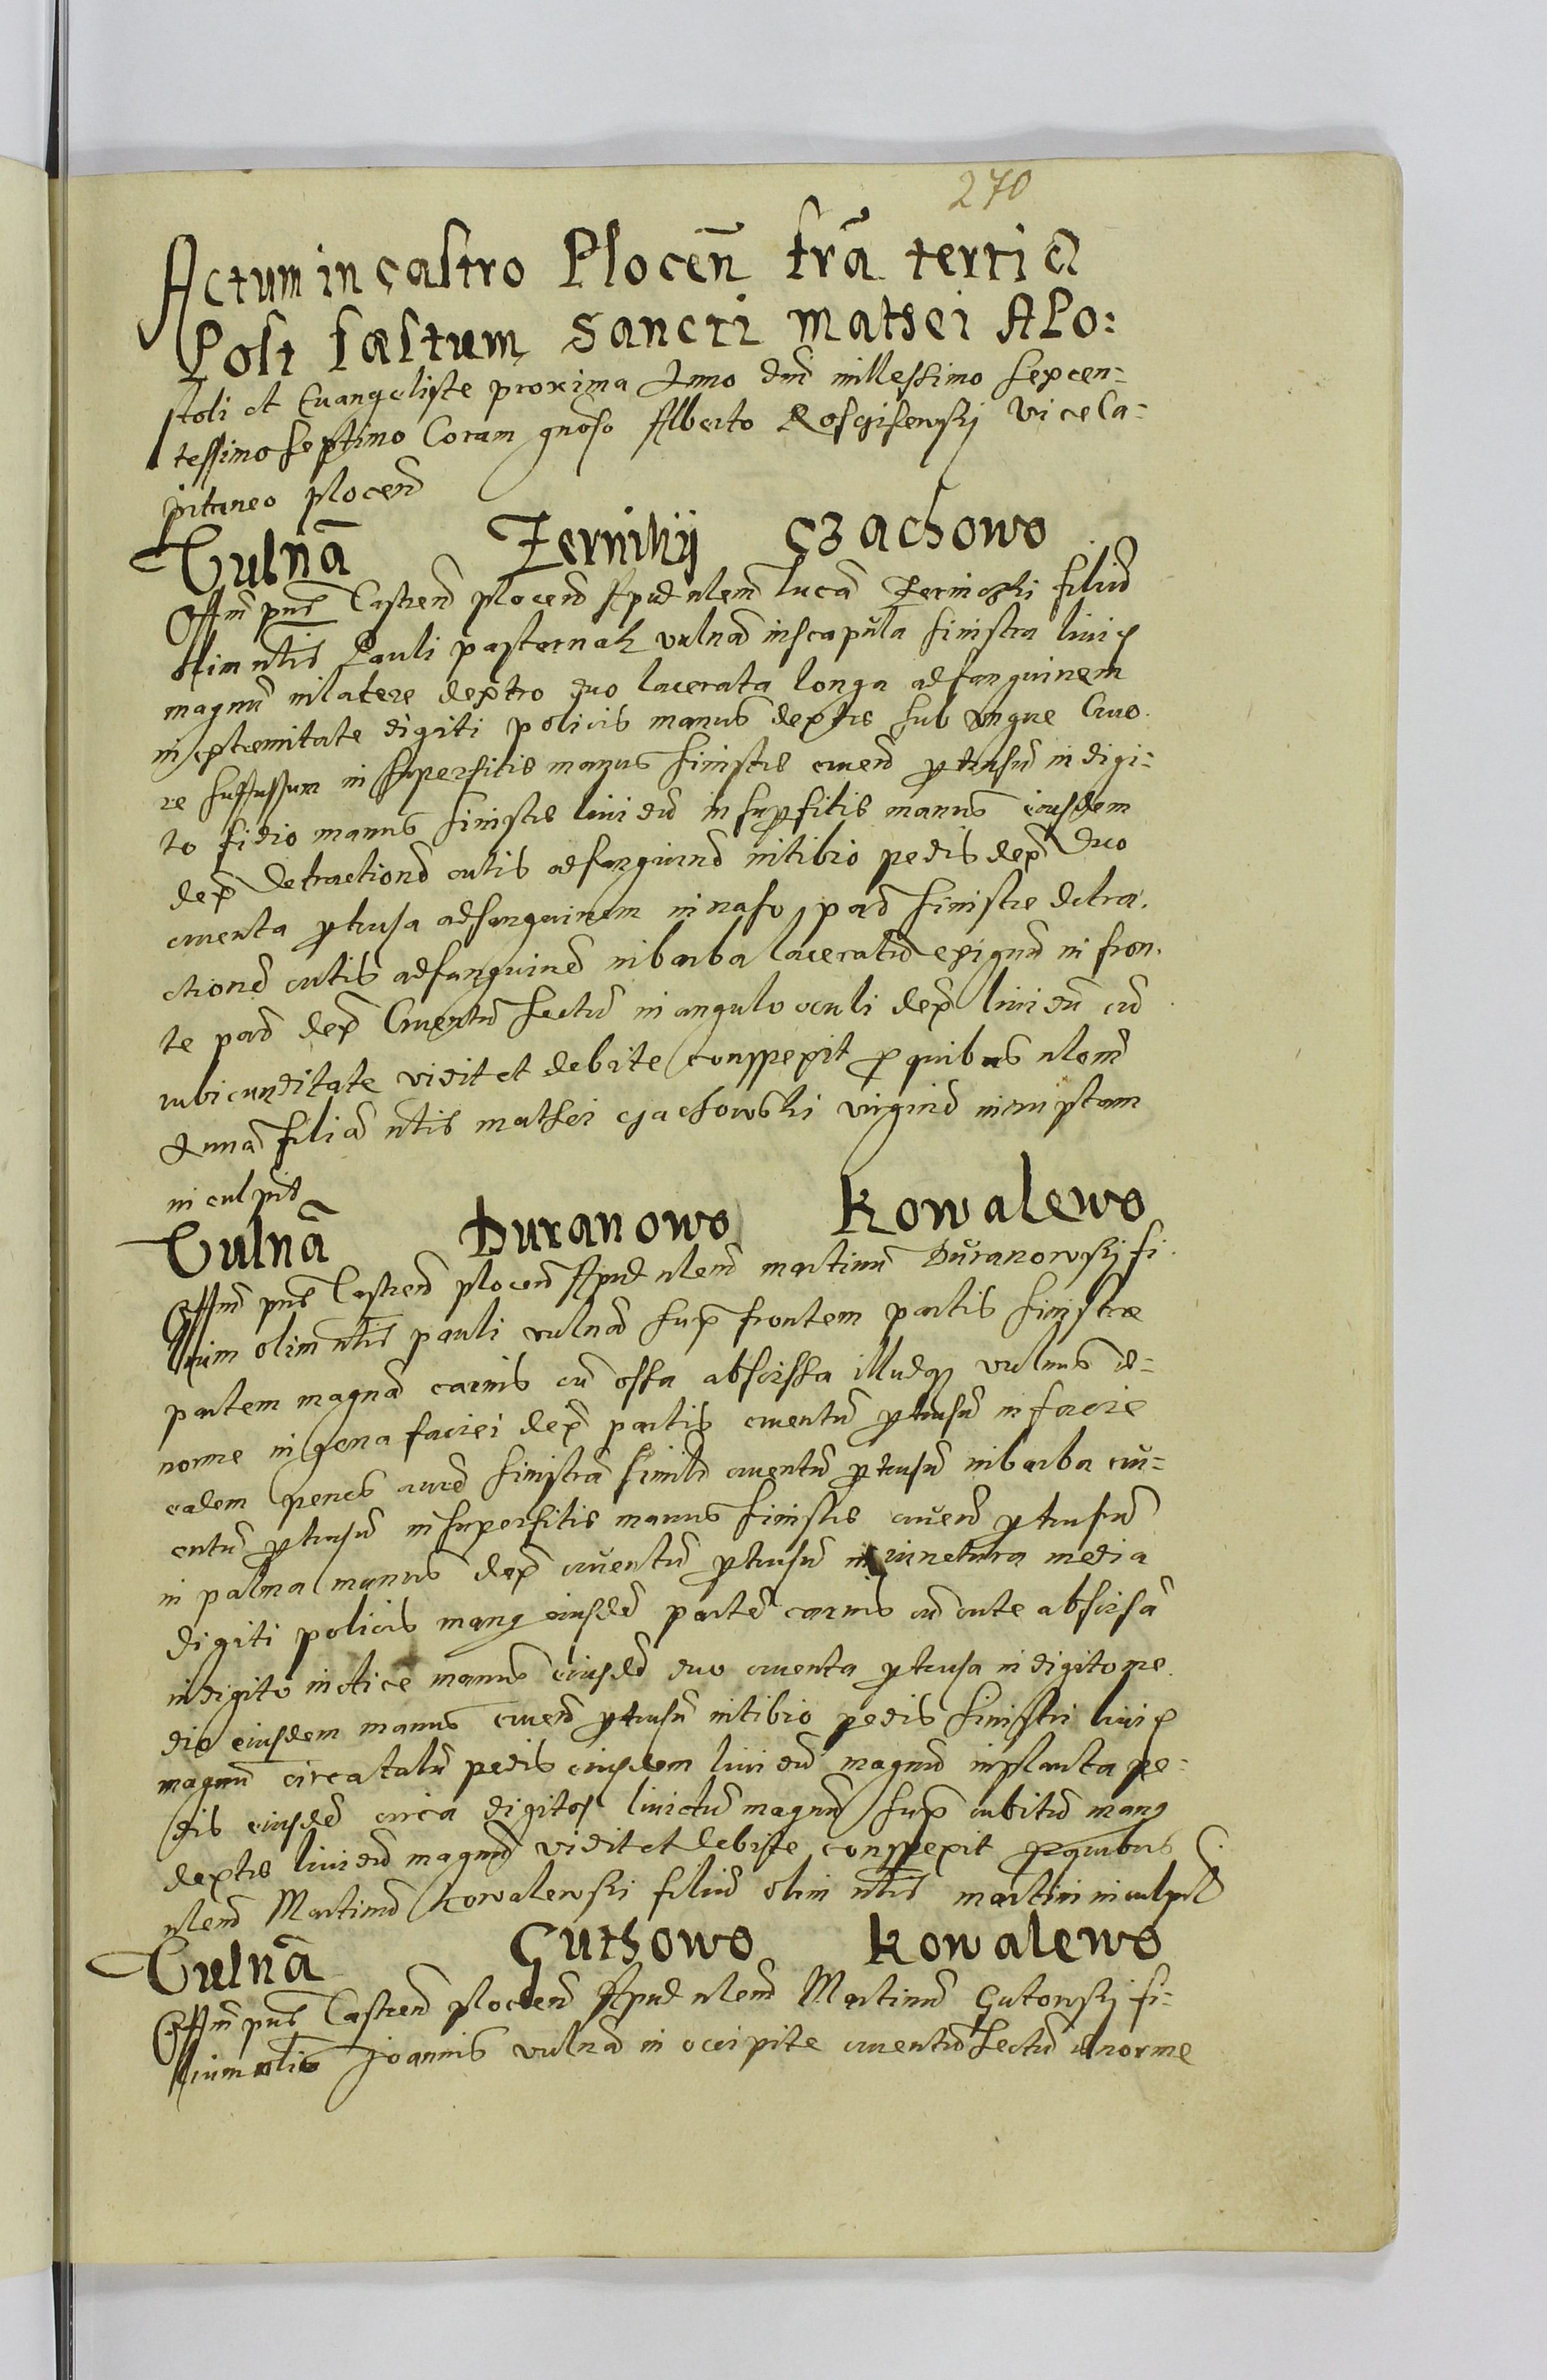 270
Actum in castro Plocen̄ fr̄a tertia
Post fæstum Sancti mathei APo:
stoli et Evangeliste proxima Anno dnī millessimo sexcen=
tessimo septimo Coram gnoso Alberto Rosciszewskj viceCa=
pitaneo plocen̄
Vulnā Zerniky Czachowo
Offm̄ pns Castren̄ plocen̄ Apud nlem̄ lucā Zerniczki filiū
olim nlis Pauli pasternak vulnā in scapŭla sinistra livid
magnū in latere dextro duo lacerata longa ad sanguinem
in extremitate digiti policis manus dextre sub ungue Cruo
re suffussum in superfitie manus sinistre cruen̄ ptusū in digi=
to fidio manus sinistre lividū in supfitie manus eiusdem
dex̄ detractionē cutis ad sanguinē in tibio pedis dex̄ duo
cruenta ptusa ad sanguinem in naso par̄ sinistre detra
ctionē cutis ad sanguinē in barba laceratū exiguū in fron
te par̄ dex̄ Cruentū sectū in angulo oculi dex̄ lividū cū
rubicunditate vidit et debite conspexit p quibus nlem̄
Annā filiā nlis mathei czachowski virginē
in culpat
Vulnā Duranowo Kowalewo
Offm̄ pns Castren̄ plocen̄ Apud nlem̄ martinū Dŭranowskj fi
lium olim nlis pauli vulnā sup frontem partis sinistræ
partem magnā carnis cū ossa abscissa illudq vulnus e=
norme in gena faciei dex̄ partis cruentū ptusū in facie
eadem penes aurē sinistrā simile cruentū ptusū in barba cru=
entū ptusū in superfitie manus sinistre cruen̄ ptusū
in palma manus dex̄ crŭentū ptusū in iunctura media
digiti policis manq eiusdē partē carnis cū cute abscisā
in digito indice manus eiusdē duo cruenta ptusa in digito me
dio eiusdem manus cruen̄ ptusū in tibio pedis sinistri livid
magnū circa talū pedis eiusdem lividū magnū in planta pe=
dis eiusdē circa digitos livictū magnū sup cubitū manq
dextre lividū magnū vidit et debite conspexit p quibus
nlem̄ Martinū Kowalewski filiū olim nlis martini inculpat
Vulnā Guthowo Kowalewo
Offm̄ pns Castren̄ plocen̄ Apud nlem̄ Martinū Gutowskj fi=
lium nlis Joannis vulnā in occipite cruentū sectū enorme